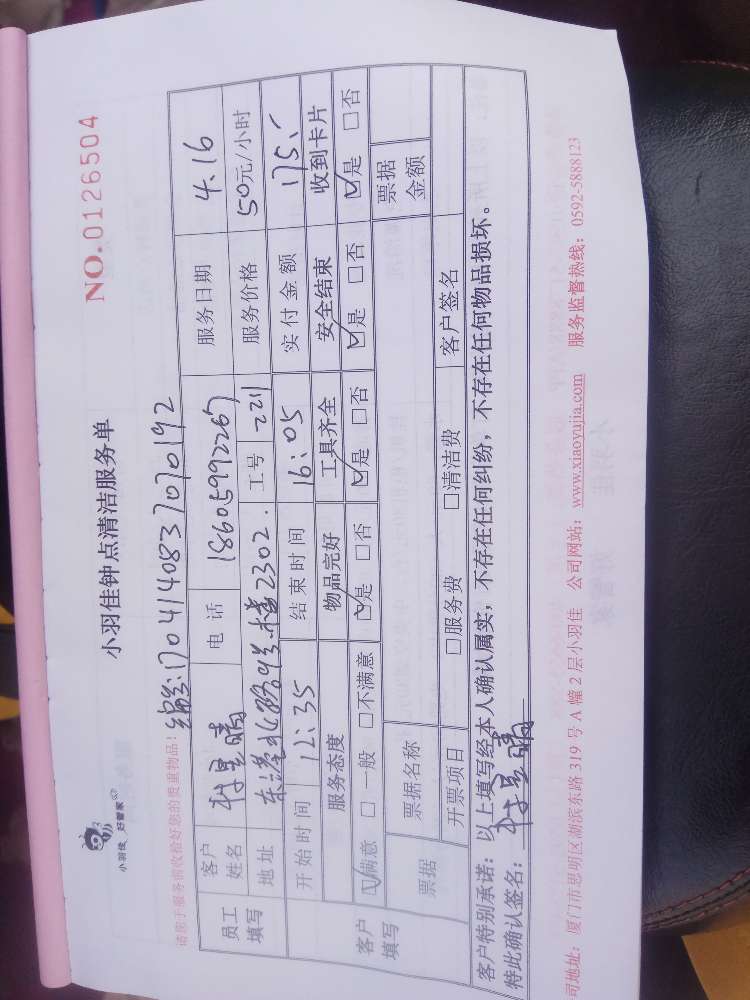 小羽佳 好管家
小羽佳钟点清洁服务单
NO.0126504
请您于服务前收拾好您的贵重物品!
编号:170414083707070192
员工填写
客户姓名 电话 18605992267 服务日期 4.16
地址 2302. 工号 221 服务价格 50元/小时
开始时间 12:35 结束时间 16:05 实付金额 175.-
客户填写
服务态度 物品完好 工具齐全 安全结束 收到卡片
☑满意 □一般 □不满意 ☑是 □否 ☑是 □否 ☑是 □否 ☑是 □否
票据 票据名称 票据金额
开票项目 □服务费 □清洁费 客户签名
客户特别承诺:以上填写经本人确认属实,不存在任何纠纷,不存在任何物品损坏。
特此确认签名:
司地址:厦门市思明区湖滨东路 319 号 A 幢 2 层小羽佳 公司网站:www.xiaoyujia.com 服务监督热线:0592-5888123